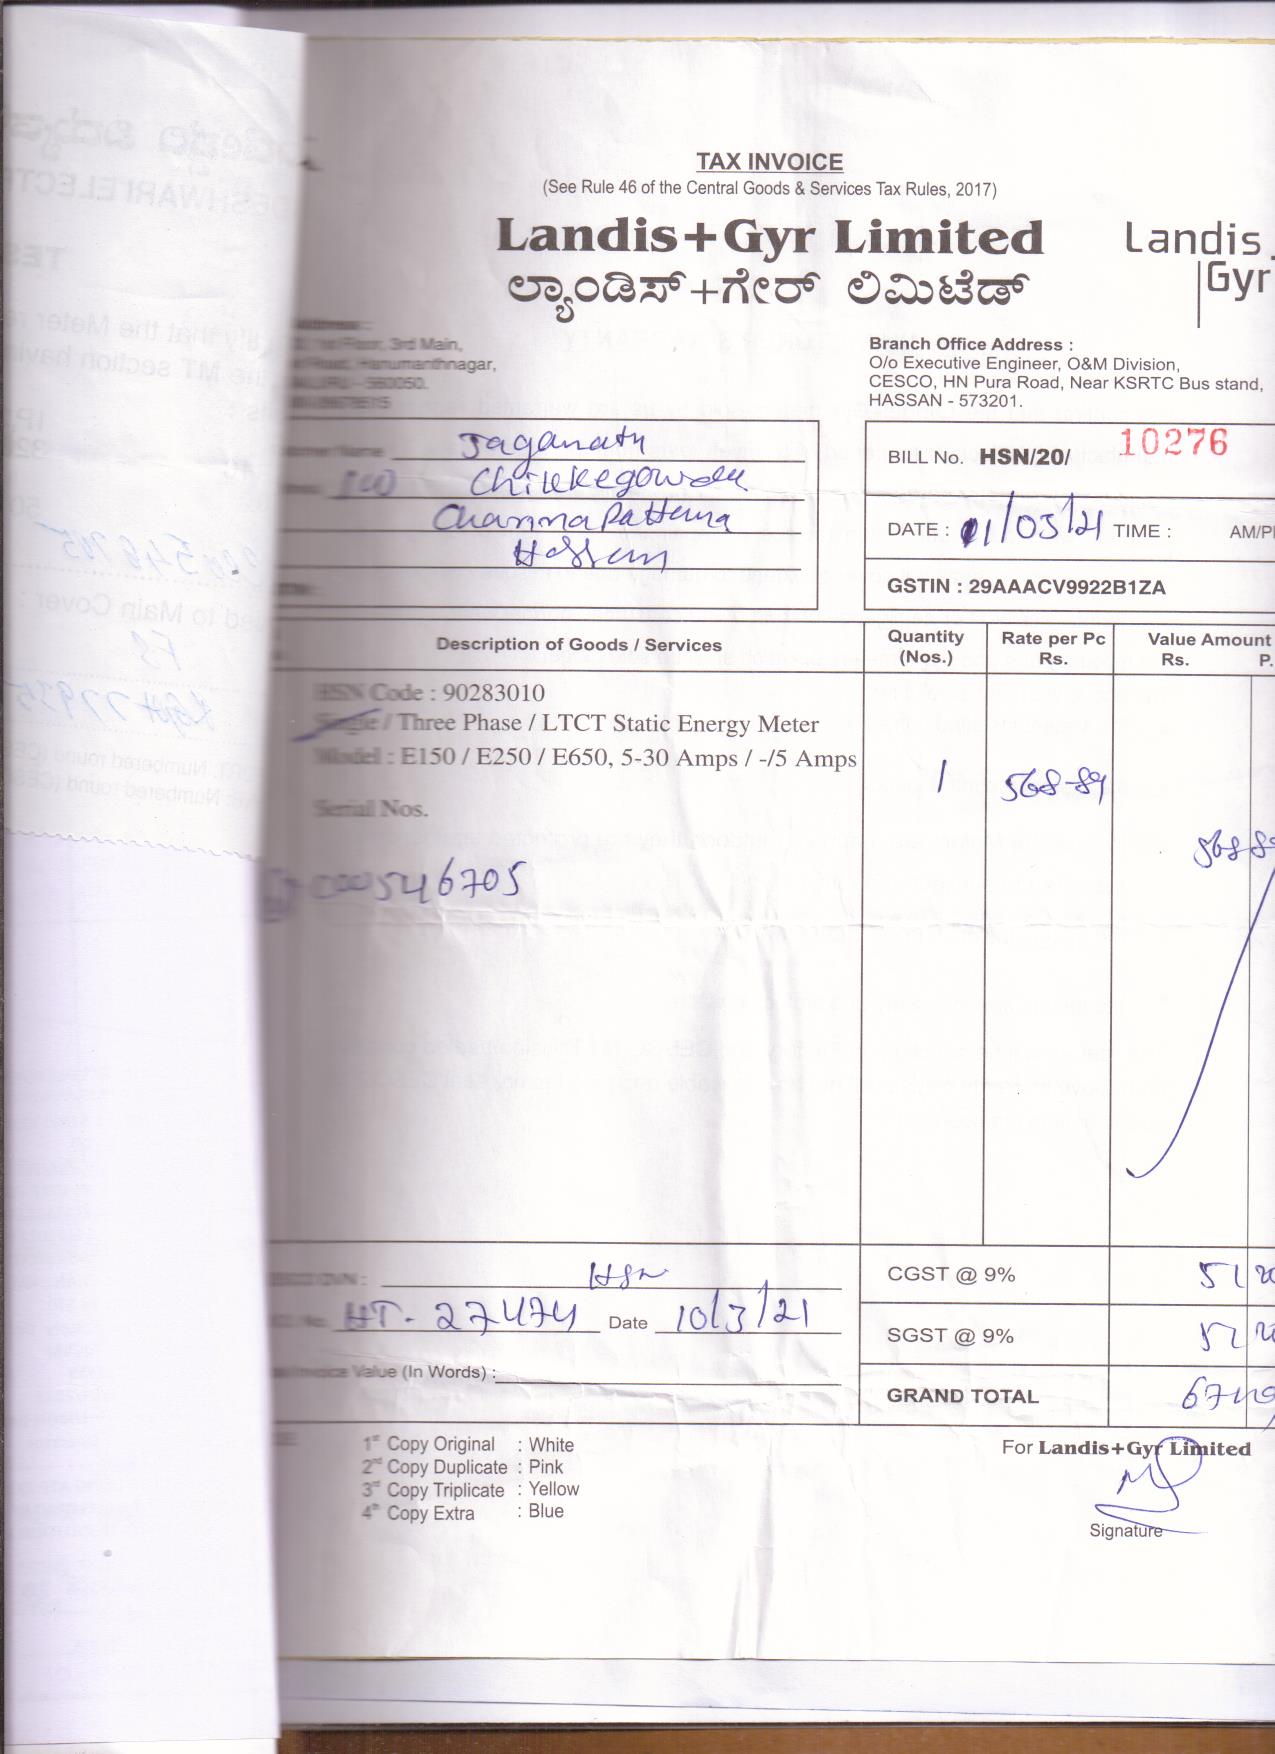 TAX INVOICE
(See Rule 46 of the Central Goods & Services Tax Rules, 2017)
Landis+Gyr Limited
ಲ್ಯಾಂಡಿಸ್+ಗೇರ್ ಲಿಮಿಟೆಡ್
Landis
Gyr
Floor, 3rd Main,
Road, Hanumanthnagar,
- 560050.
Branch Office Address :
O/o Executive Engineer, O&M Division,
CESCO, HN Pura Road, Near KSRTC Bus stand,
HASSAN - 573201.
Name Jaganath
Chikkegowda
Channapattana
Hassan
BILL No. HSN/20/ 10276
DATE : 11/03/21 TIME : AM/P
GSTIN : 29AAACV9922B1ZA
Description of Goods / Services
Quantity (Nos.)
Rate per Pc Rs.
Value Amount Rs. P.
HSN Code : 90283010
Single / Three Phase / LTCT Static Energy Meter
Model : E150 / E250 / E650, 5-30 Amps / -/5 Amps
1 568-89
Serial Nos.
568 89
000546705
HSN
CGST @ 9% 51 20
No. HT- 27474 Date 10/3/21
SGST @ 9% 51 20
Invoice Value (In Words) :
GRAND TOTAL
1st Copy Original : White
2nd Copy Duplicate : Pink
3rd Copy Triplicate : Yellow
4th Copy Extra : Blue
For Landis+Gyr Limited
Signature